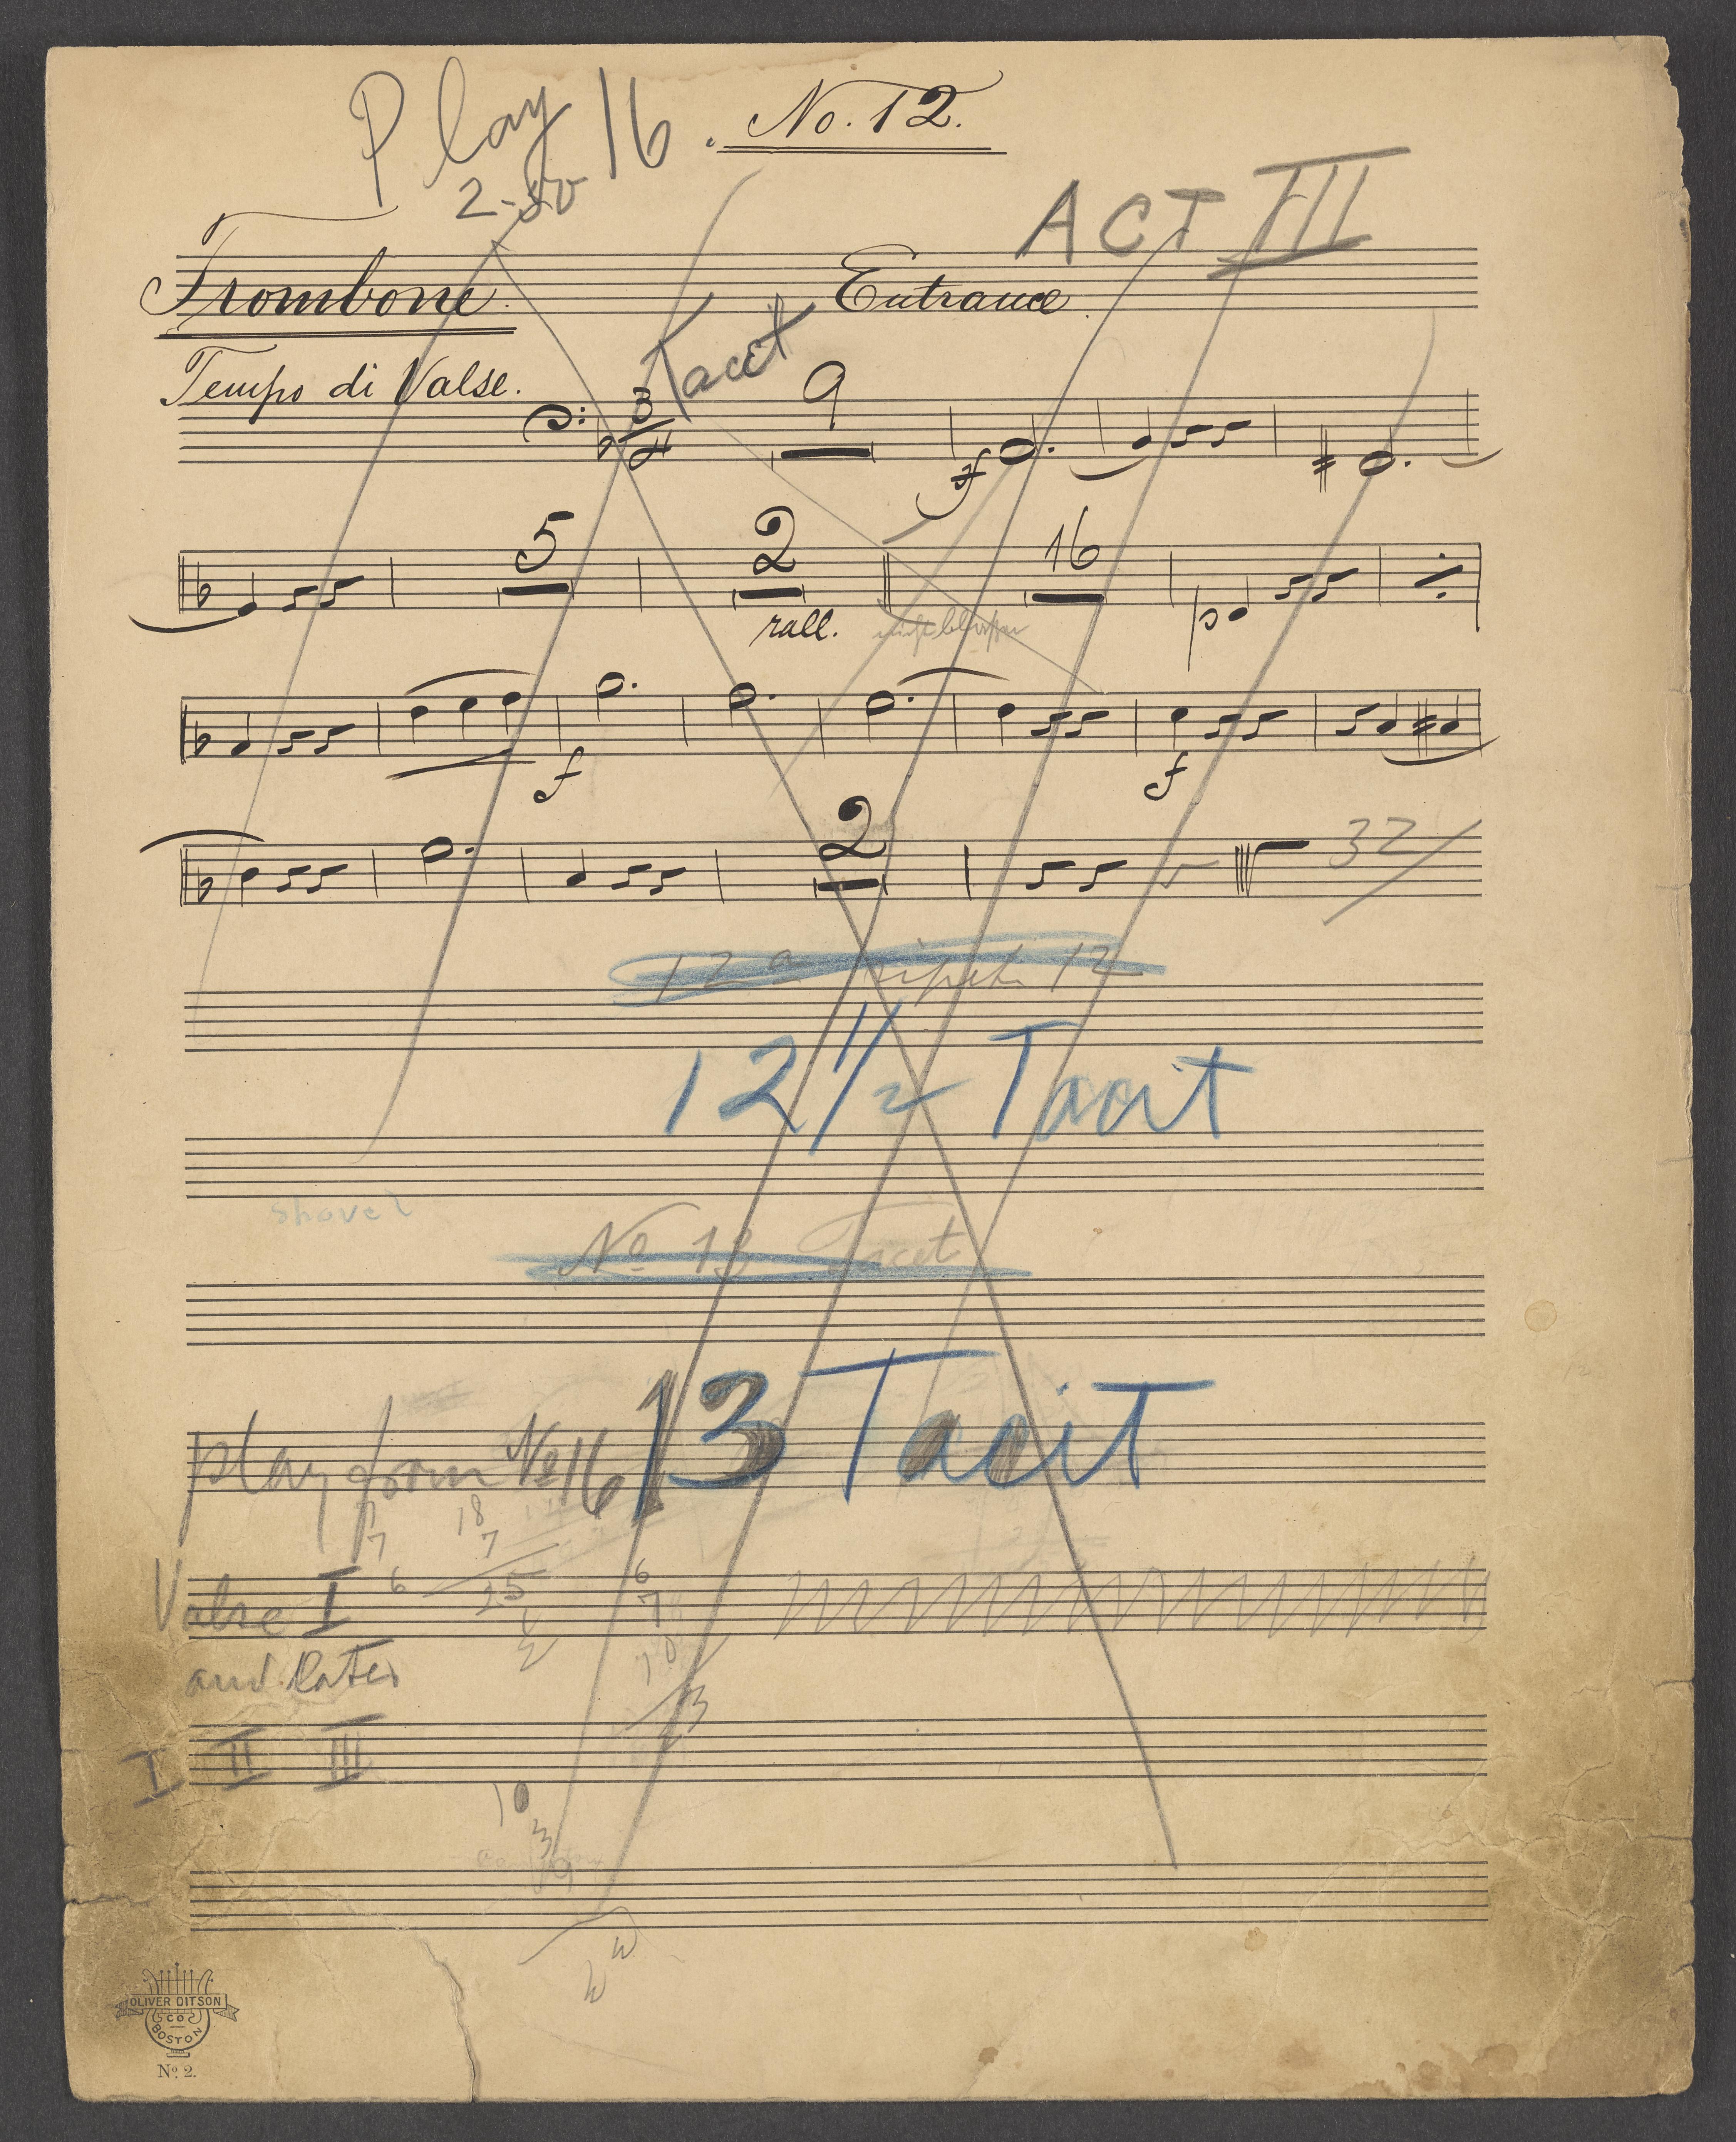 Play 16. No. 12.
ACT III
Trombone. Entrance.
Tacet
Tempo di Valse.
3
4
9
f
5
2
16
rall.
p
f
f
2
32
12a 12
12 1/2 Tacit
shovel
No 13 Tacet
play from No 16 13 Tacit
7
18
7
6
25
6
7
Valse I
and later
I II III
10
3
OLIVER DITSON
CO
BOSTON
No. 2.